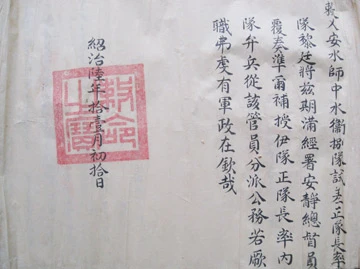 乂安水師中水衛捌隊試差正隊長率
隊黎廷將茲期滿經署安靜總督員
覆奏準爾補授伊隊正隊長率內
隊弁兵從該管員分派公務若厥
職弗虔有軍政在欽哉
紹治陸年拾壹月初拾日
敕命之寶